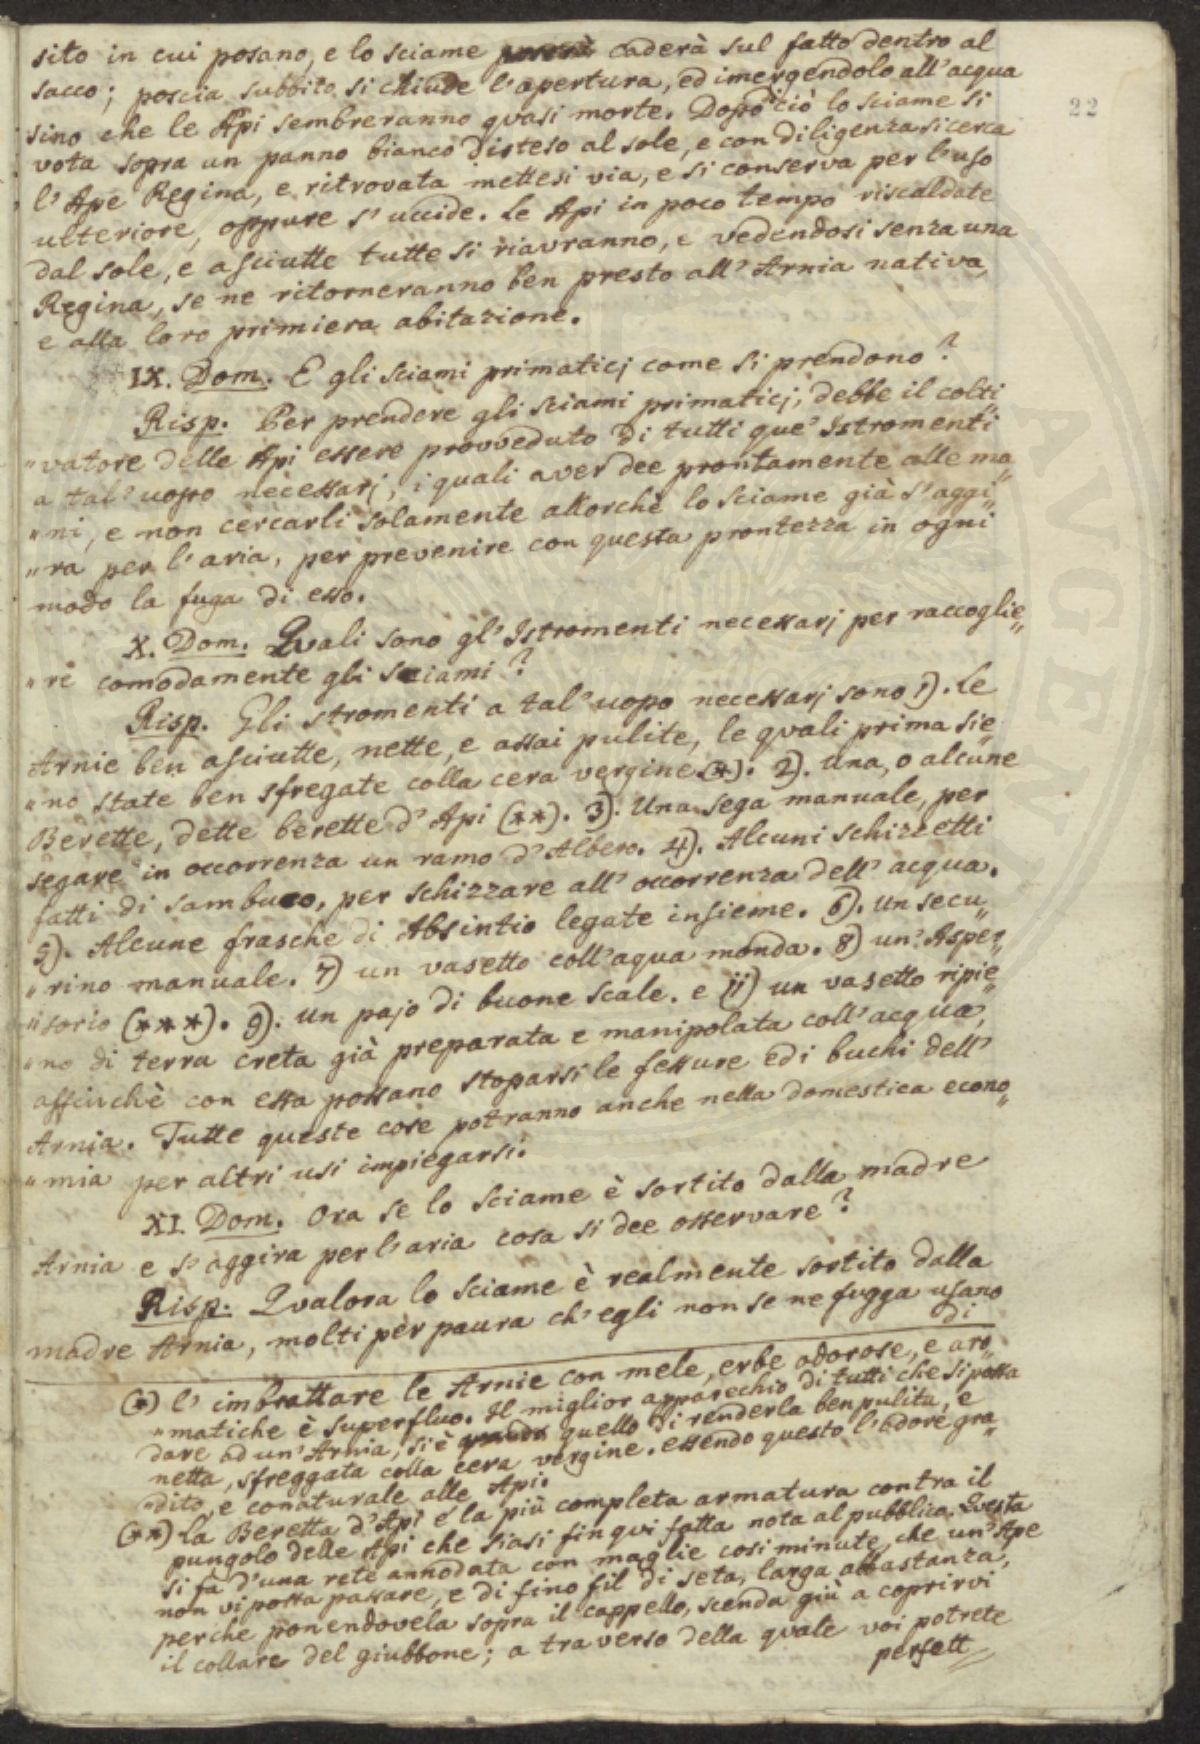 22
sito in cui posano, e lo sciame caderà sul fatto dentro al
sacco; poscia subbito si chiude l'apertura, ed imergendolo all'acqua
sino che le Api sembreranno quasi morte. Dopo ciò lo sciame si
vota sopra un panno bianco disteso al sole, e con diligenza si cerca
l'Ape Regina, e ritrovata mettesi via, e si conserva per l'uso
ulteriore, oppure s'uccide. Le Api in poco tempo riscaldate
dal sole, e asciutte tutte si riavranno, e vedendosi senza una
Regina, se ne ritorneranno ben presto all'Arnia nativa,
e alla loro primiera abitazione.
IX. Dom. E gli sciami primaticj come si prendono?
Risp. Per prendere gli sciami primaticj, debbe il colti„
„vatore delle Api essere provveduto di tutti que' Istromenti
a tal'uopo necessarj, i quali aver dee prontamente alle ma„
„ni, e non cercarli solamente allorchè lo sciame già s'aggi„
„ra per l'aria, per prevenire con questa prontezza in ogni
modo la fuga di esso.
X. Dom. Quali sono gl'Istromenti necessarj per raccoglie„
„re comodamente gli sciami?
Risp. Gli stromenti a tal'uopo necessarj sono 1). Le
Arnie ben asciutte, nette, e assai pulite, le quali prima sie„
„no state ben sfregate colla cera vergine (*). 2). Una, o alcune
Berette, dette berette d'Api (**). 3). Una sega manuale, per
segare in occorrenza un ramo d'Albero. 4). Alcuni schizzetti
fatti di sambuco, per schizzare all'occorrenza dell'acqua.
5). Alcune frasche di Absintio legate insieme. 6). Un secu„
„rino manuale. 7) un vasetto coll'aqua monda. 8) un'Asper„
„sorio (***). 9). un pajo di buone scale. e 11) un vasetto ripie„
„no di terra creta già preparata e manipolata coll'acqua,
affinchè con essa possano stoparsi le fessure ed i buchi dell'
Arnia. Tutte queste cose potranno anche nella domestica econo„
„mia per altri usi impiegarsi.
XI. Dom. Ora se lo sciame è sortito dalla madre
Arnia e s'aggira per l'aria cosa si dee osservare?
Risp. Qualora lo sciame è realmente sortito dalla
madre Arnia, molti per paura ch'egli non se ne fugga usano
di
(*) L'imbrattare le Arnie con mele, erbe odorose, e aro„
„matiche è superfluo. Il miglior apparechio di tutti che si possa
dare ad un'Arnia, si è quello di renderla ben pulita, e
netta, sfreggata colla cera vergine. essendo questo l'odore gra„
„dito, e conaturale alle Api.
(**) La Beretta d'Api è la più completa armatura contra il
pungolo delle Api che siasi fin qui fatta nota al pubblico. Questa
si fa d'una rete annodata con maglie così minute, che un'Ape
non vi possa passare, e di fino fil di seta, larga abbastanza,
perche ponendovela sopra il cappello, scenda giù a coprirvi
il collare del giubbone; a traverso della quale voi potrete
perfett